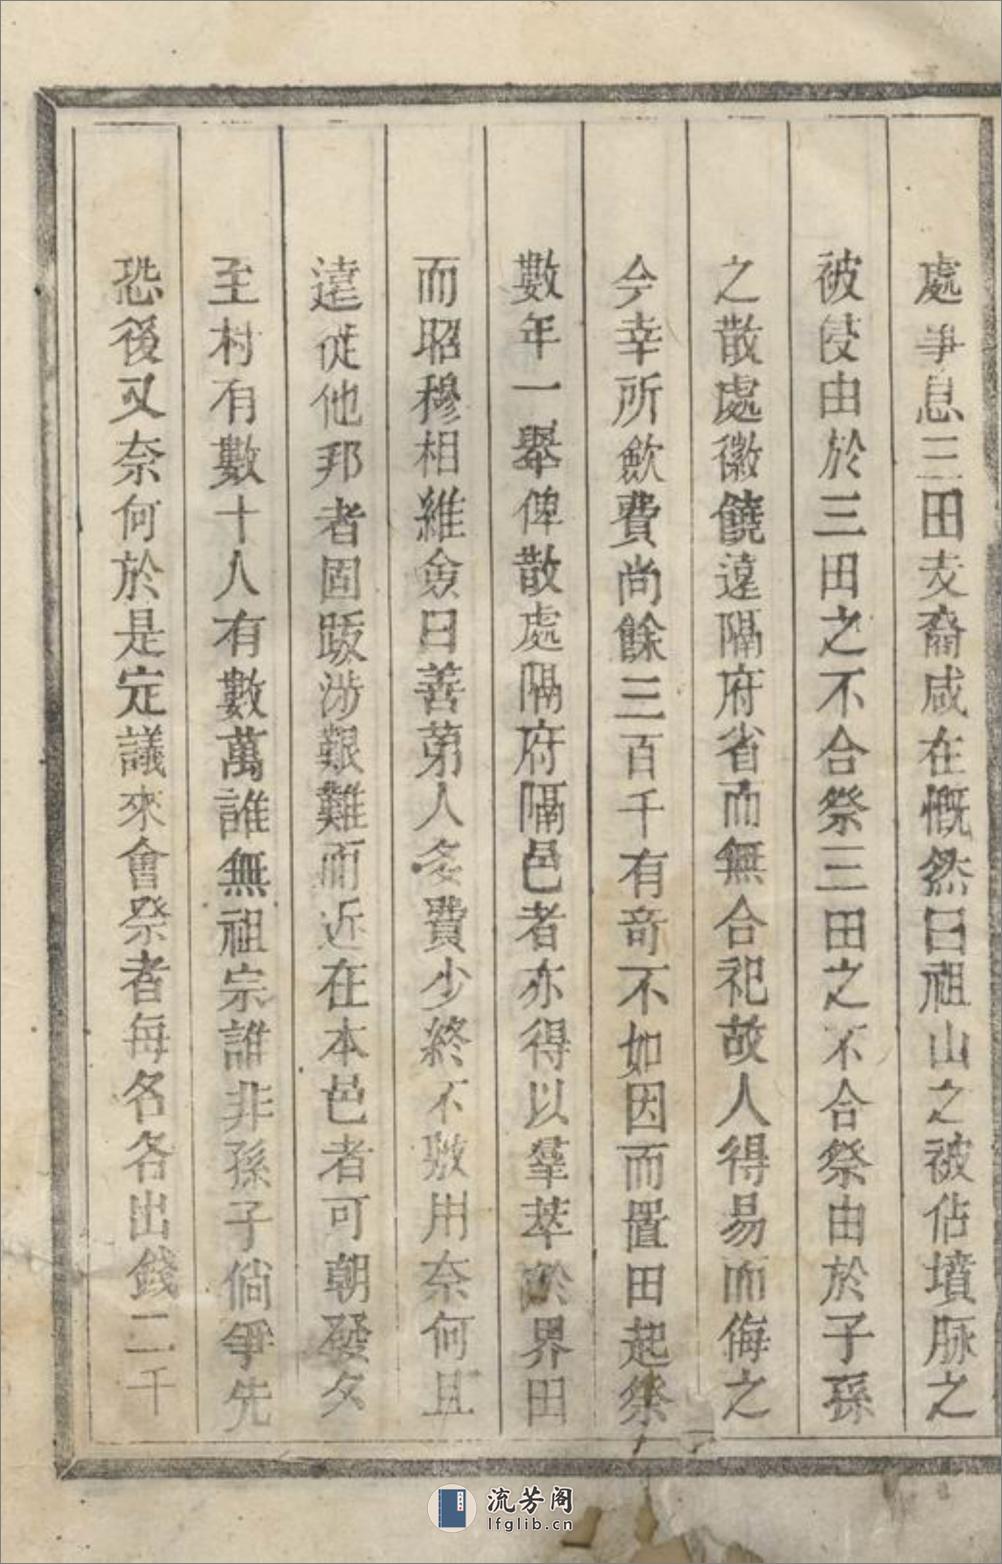 處爭息三田支裔咸在慨然曰祖山之被佔墳脉之
被侵由於三田之不合祭三田之不合祭由於子孫
之散處徽饒遠隔府省而無合祀故人得易而侮之
今幸所歛費尚餘三百千有奇不如因而置田起祭
數年一舉俾散處隔府隔邑者亦得以羣萃於界田
而昭穆相維僉曰善苐人多費少終不敷用奈何且
遠從他邦者固跋涉艱難而近在本邑者可朝發夕
至村有數十人有數萬誰無祖宗誰非孫子倘爭先
恐後又奈何於是定議來會祭者每名各出錢二千
流芳阁
lfglib.cn